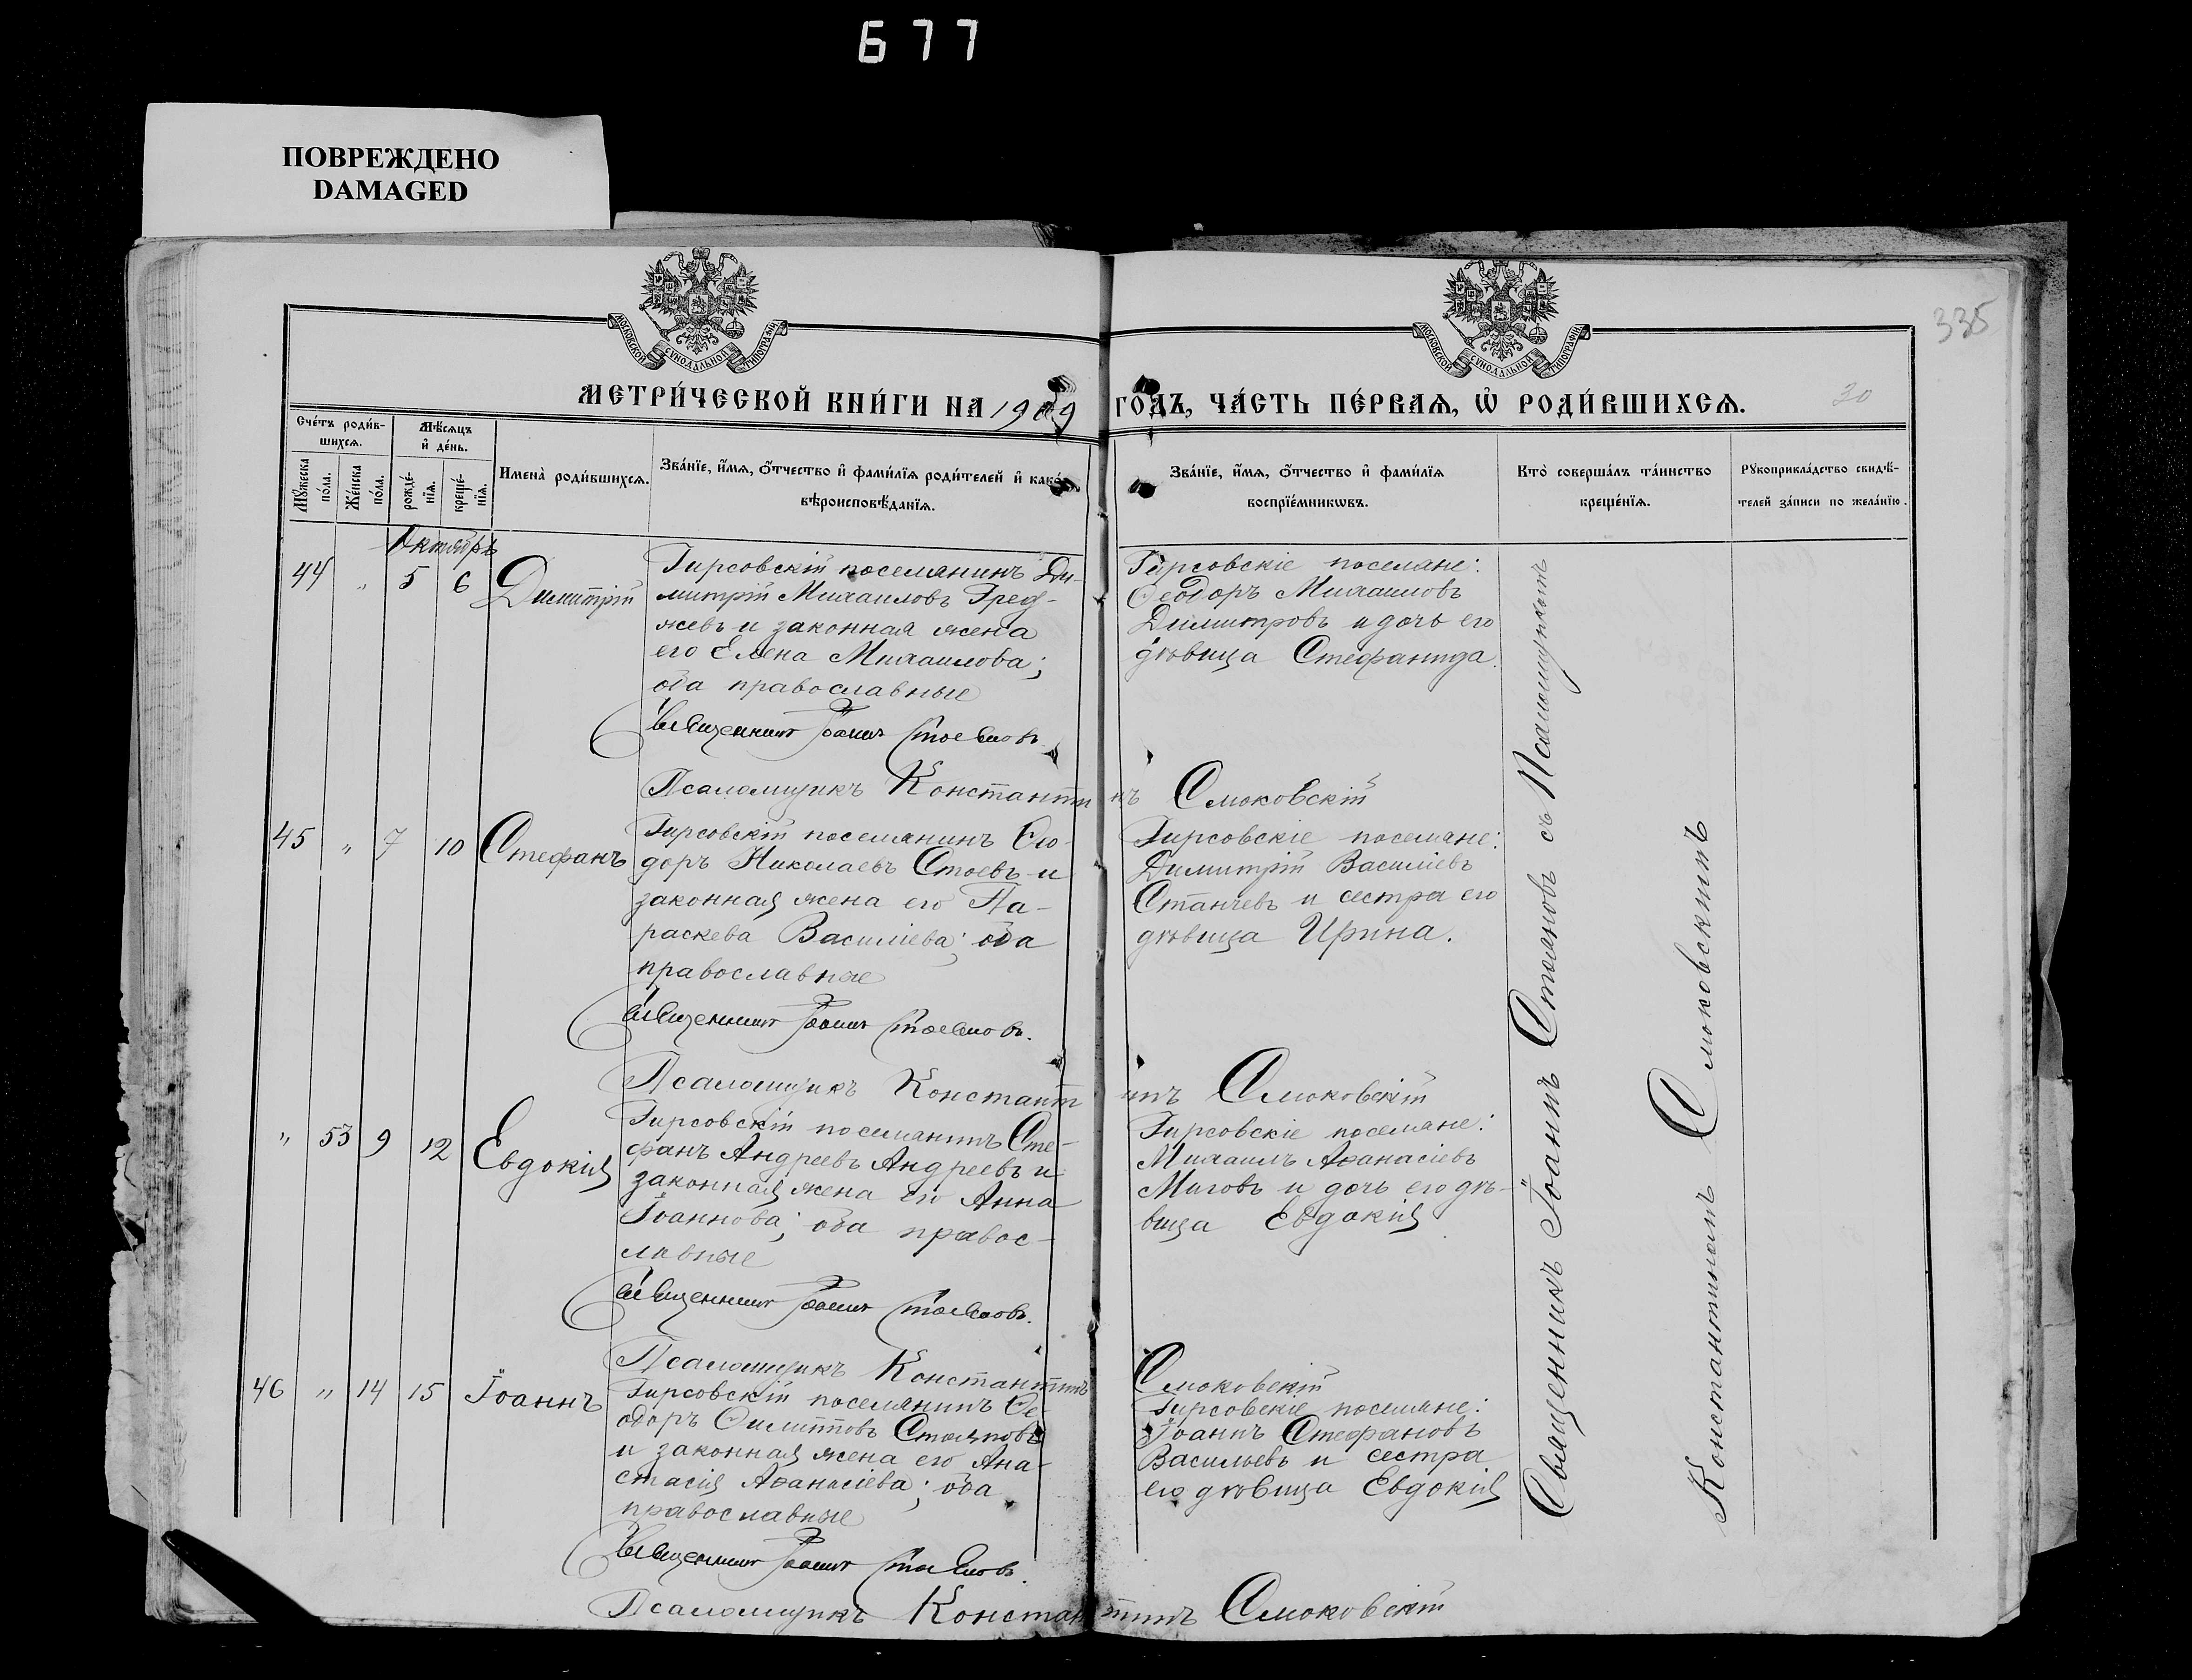 677
ПОВРЕЖДЕНО
DAMAGED
МОСКОВСКОЙ СѴНОДАЛЬНОЙ ТИПОГРАФІИ
МОСКОВСКОЙ СѴНОДАЛЬНОЙ ТИПОГРАФІИ
335
МЕТРИ́ЧЕСКОЙ КНИ́ГИ НА 1909 ГО́ДЪ, ЧА́СТЬ ПЕ́РВАѦ, Ѡ҆ РОДИ́ВШИХСѦ.
30
Сче́тъ роди́в-
шихсѧ.
Мѣ́сѧцъ
и҆ де́нь.
Мꙋ́жеска
по́ла.
Же́нска
по́ла.
рожде́-
нїѧ.
креще́-
нїѧ.
Имена̀ роди́вшихсѧ.
Зва́нїе, и҆́мѧ, ѻ҆́тчество и҆ фами́лїѧ роди́телей и҆ како́гѡ
вѣроисповѣ́данїѧ.
Зва́нїе, и҆́мѧ, ѻ҆́тчество и҆ фами́лїѧ
воспрїе́мникѡвъ.
Кто̀ соверша́лъ та́инство
креще́нїѧ.
Рꙋкоприкла́дство свидѣ́-
телей за́писи по жела́нїю.
Октябрь
44 " 5 6 Димитрій
Гирсовскій поселянинъ Ди-
митрій Михаиловъ
жевъ и законная жена
его Елена Михаилова;
оба православные
Гирсовскіе поселяне:
Ѳеодоръ Михаиловъ
Димитровъ и дочь его
дѣвица Стефанида.
Священникъ Іоаннъ Стояновъ
Псаломщикъ Константинъ Смоковскій
45 " 7 10 Стефанъ
Гирсовскій поселянинъ Ѳео-
доръ Николаевъ Стоевъ и
законная жена его Па-
раскева Василіева; оба
православные
Гирсовскіе поселяне:
Димитрій Василіевъ
Станчевъ и сестра его
дѣвица Ирина.
Священникъ Іоаннъ Стояновъ.
Псаломщикъ Константинъ Смоковскій
" 53 9 12 Евдокія
Гирсовскій поселянинъ Сте-
фанъ Андреевъ Андреевъ и
законная жена его Анна
Іоаннова; оба правос-
лавные
Гирсовскіе поселяне:
Михаилъ Аѳанасіевъ
Миговъ и дочь его дѣ-
вица Евдокія
Священникъ Іоаннъ Стояновъ.
Псаломщикъ Константинъ Смоковскій
46 " 14 15 Іоаннъ
Гирсовскій поселянинъ Ѳе-
одоръ Стояновъ
и законная жена его Ана-
стасія Аѳанасіева; оба
православные
Гирсовскіе поселяне:
Іоаннъ Стефановъ
Васильевъ и сестра
его дѣвица Евдокія
Священникъ Іоаннъ Стояновъ.
Псаломщикъ Константинъ Смоковскій
Священникъ Іоаннъ Стояновъ съ Псаломщикомъ
Константиномъ Смоковскимъ